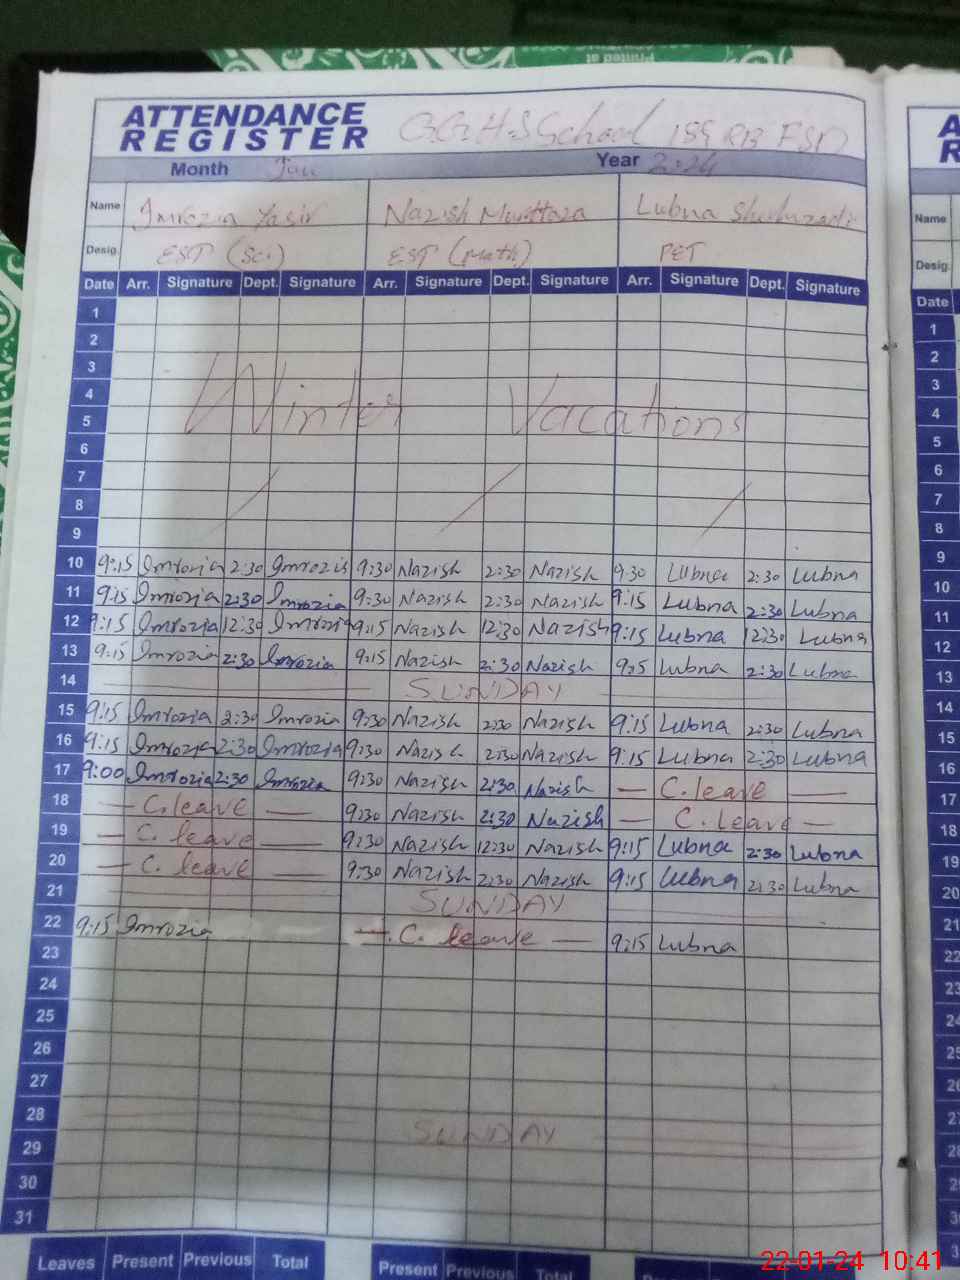 Printed at
ATTENDANCE
REGISTER
G.G.H.S School 189 RB FSD
Month Jan Year 2024
Name Imrozia Yasir Nazish Murttaza Lubna
Desig. EST (Sci) EST (Math) PET
Date Arr. Signature Dept. Signature Arr. Signature Dept. Signature Arr. Signature Dept. Signature
1
2
3
4 Winter Vacations
5
6
7
8
9
10 9:15 Imrozia 2:30 Imrozia 9:30 Nazish 2:30 Nazish 9:30 Lubna 2:30 Lubna
11 9:15 Imrozia 2:30 Imrozia 9:30 Nazish 2:30 Nazish 9:15 Lubna 2:30 Lubna
12 9:15 Imrozia 12:30 Imrozia 9:15 Nazish 12:30 Nazish 9:15 Lubna 12:30 Lubna
13 9:15 Imrozia 2:30 Imrozia 9:15 Nazish 2:30 Nazish 9:15 Lubna 2:30 Lubna
14 SUNDAY
15 9:15 Imrozia 2:30 Imrozia 9:30 Nazish 2:30 Nazish 9:15 Lubna 2:30 Lubna
16 9:15 Imrozia 2:30 Imrozia 9:30 Nazish 2:30 Nazish 9:15 Lubna 2:30 Lubna
17 9:00 Imrozia 2:30 Imrozia 9:30 Nazish 2:30 Nazish — C. leave —
18 — C. leave — 9:30 Nazish 2:30 Nazish — C. Leave —
19 — C. leave — 9:30 Nazish 12:30 Nazish 9:15 Lubna 2:30 Lubna
20 — C. leave — 9:30 Nazish 2:30 Nazish 9:15 Lubna 2:30 Lubna
21 SUNDAY
22 9:15 Imrozia — C. leave — 9:15 Lubna
23
24
25
26
27
28 SUNDAY
29
30
31
Leaves Present Previous Total Present Previous Total
A
R
Name
Desig.
Date
1
2
3
4
5
6
7
8
9
10
11
12
13
14
15
16
17
18
19
20
21
22
23
24
25
26
27
28
29
30
22-01-24 10:41